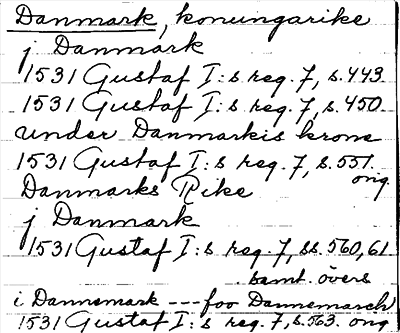 Danmark, konungarike
j Danmark
1531 Gustaf I:s reg. 7, s. 443
1531 Gustaf I:s reg. 7, s. 450
under Danmarkis krone
1531 Gustaf I:s reg. 7, s. 551.
orig.
Danmarks Rike
j Danmark
1531 Gustaf I:s reg. 7, ss. 560, 61
samt. övers
i Dannemark --- foo Dannemarch
1531 Gustaf I:s reg. 7, s. 563. orig